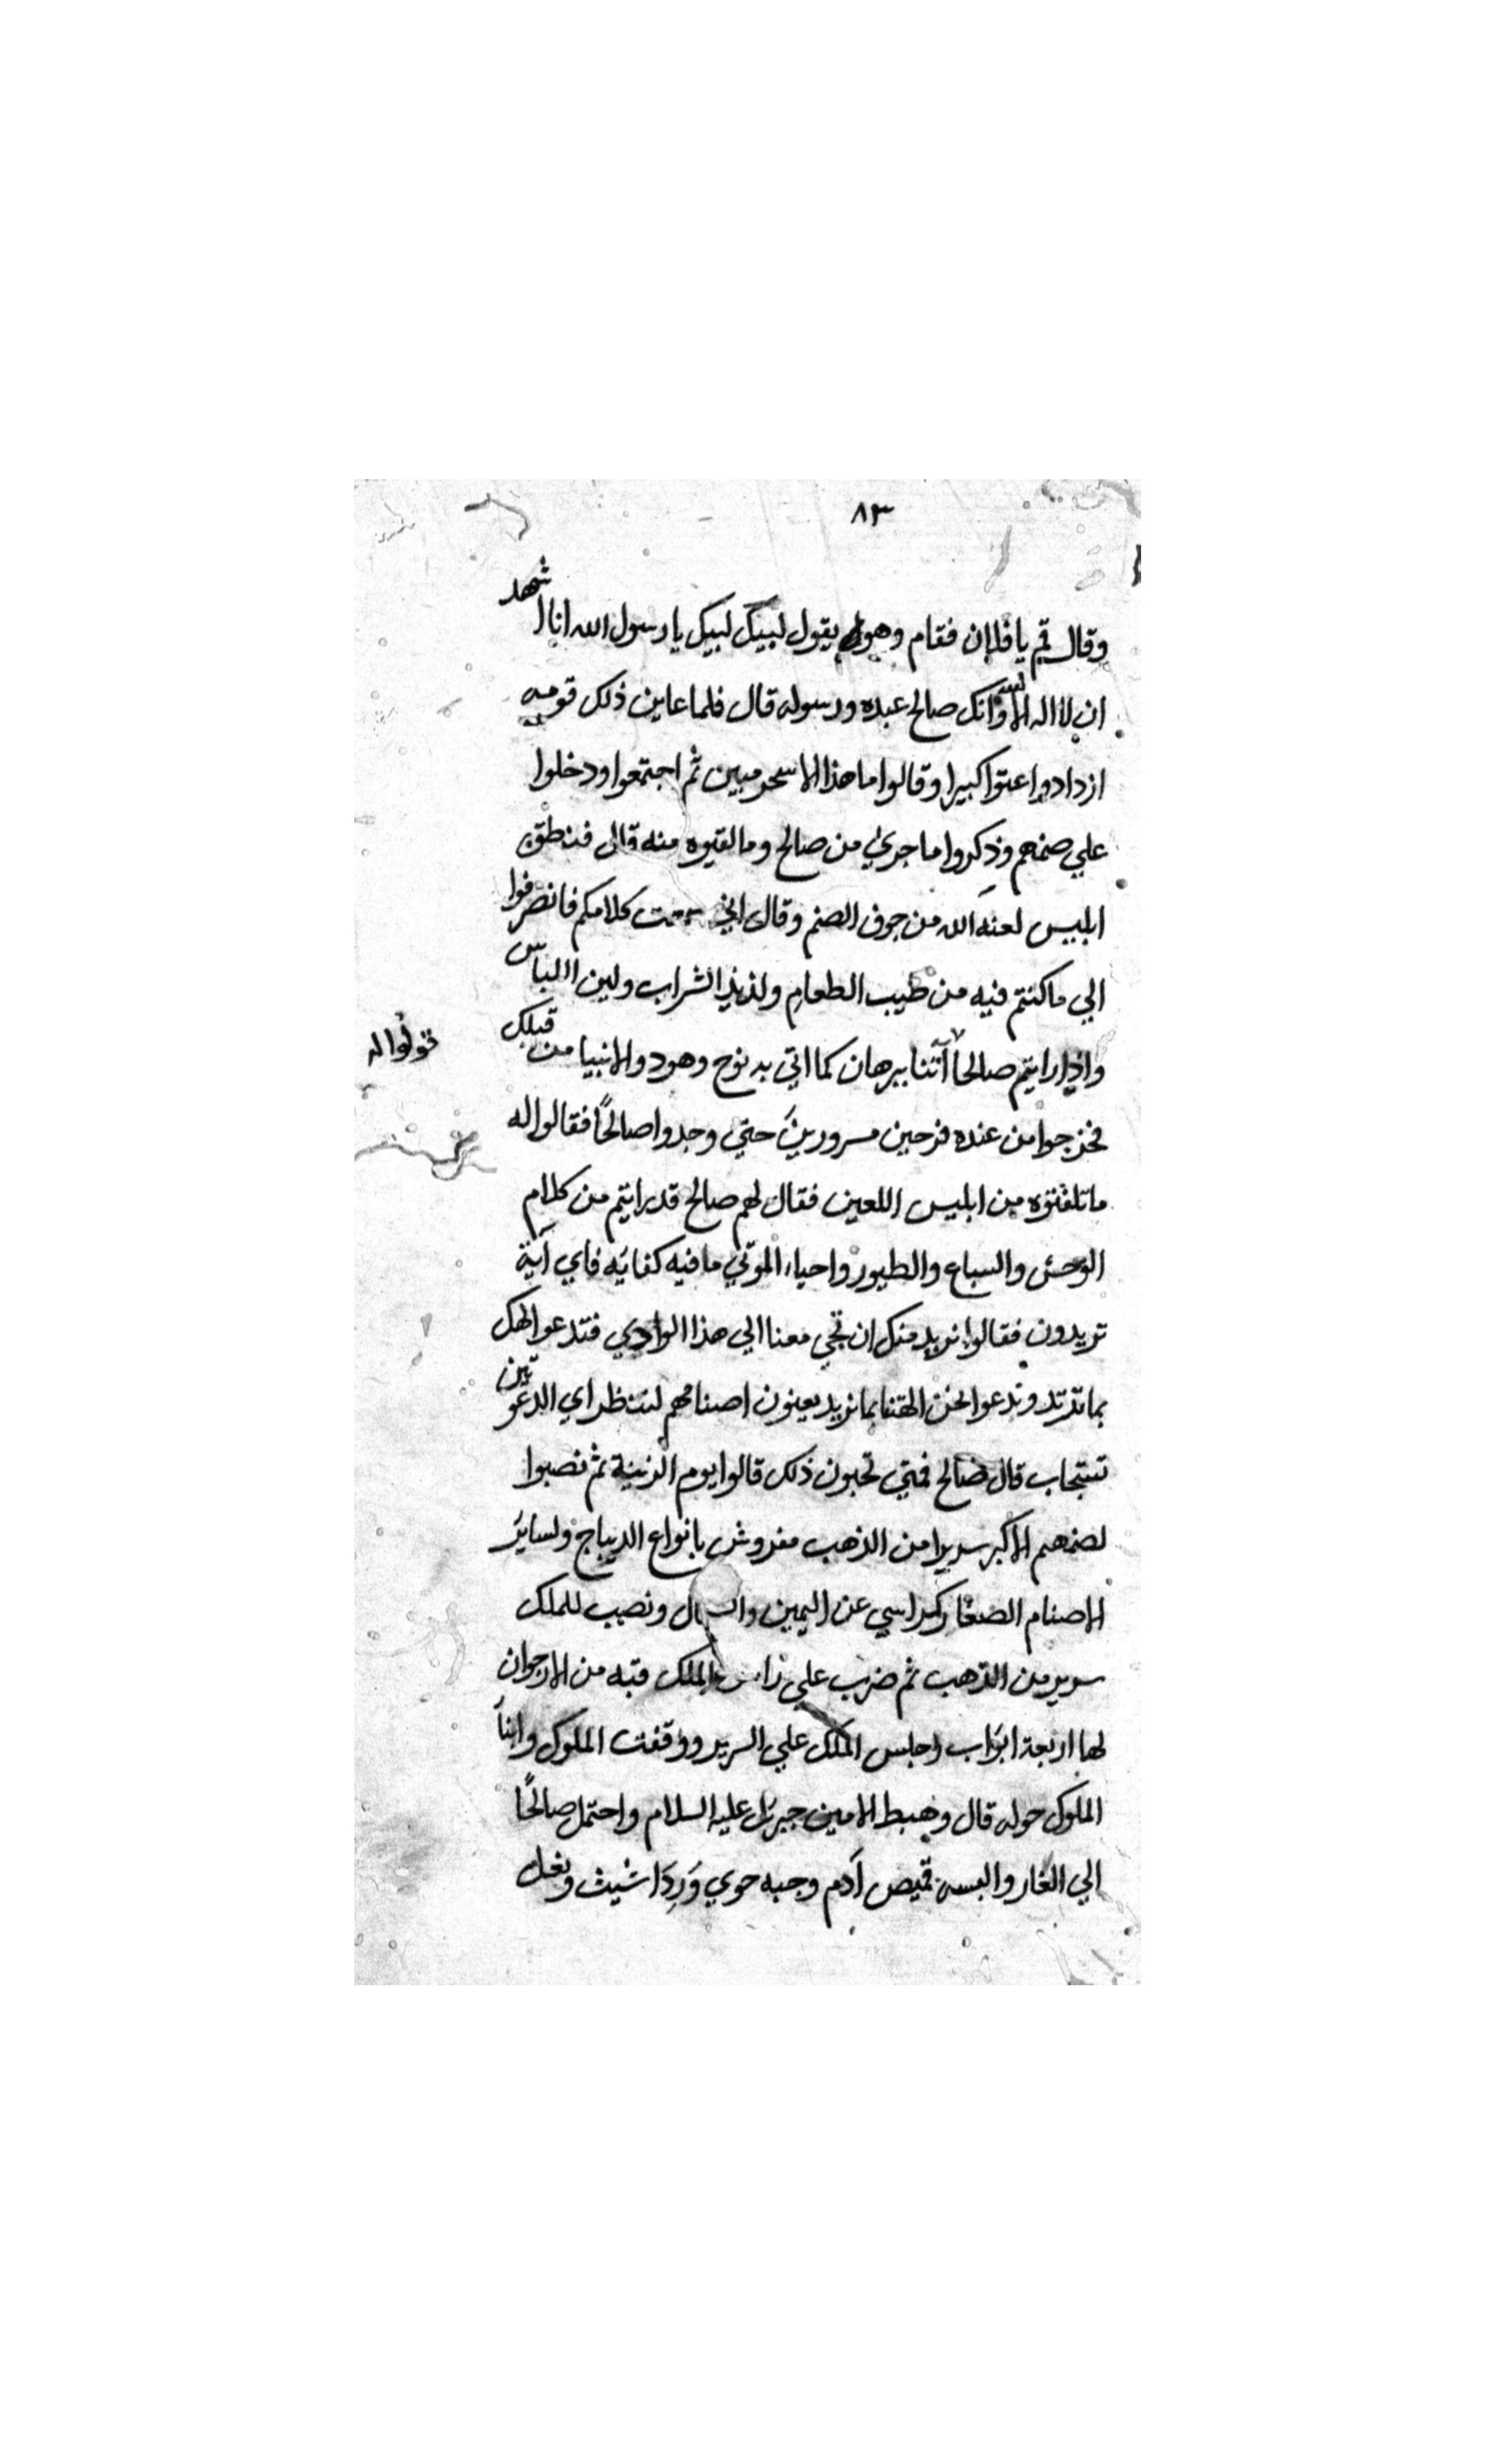 ٨٣
وقال قم يا فلان فقام وهو يقول لبيك لبيك يا رسول الله انا اشهد
ان لا اله الا الله وانك صالح عبده ورسوله قال فلما عاين ذلك قومه
ازدادوا عتوا كبيرا وقالوا ما هذا الا سحر مبين ثم اجتمعوا ودخلوا
علي صنمهم وذكروا ما جري من صالح وما لقيوه منه قال فنطق
ابليس لعنه الله من جوف الصنم وقال اني سمعت كلامكم فانصرفوا
الي ما كنتم فيه من طيب الطعام ولذيذ الشراب ولين اللباس
واذا رايتم صالحا أئتنا ببرهان كما اتي به نوح وهود والانبيا من قبلك
قولوا له
فخرجوا من عنده فرحين مسرورين حتي وجدوا صالحًا فقالوا له
ما تلقنوه من ابليس اللعين فقال لهم صالح قد رايتم من كلام
الوحش والسباع والطيور واحياء الموتي ما فيه كفايه فاي آية
تريدون فقالوا نريد منك ان تجي معنا الي هذا الوادي فتدعو الهك
بما ترتد وندعوا نحن الهتنا بما نريد يعنون اصنامهم لننظر اي الدعوتين
تستجاب قال صالح فمتي تحبون ذلك قالوا يوم الزينة ثم نصبوا
لصنمهم الاكبر سريرا من الذهب مفروش بانواع الديباج ولساير
الاصنام الصغار كراسي عن اليمين والشمال ونصب للملك
سرير من الذهب ثم ضرب علي راس الملك قبه من الارجوان
لها اربعة ابواب وجلس الملك علي السرير ووقفت الملوك وابنآ
الملوك حوله قال وهبط الامين جبريل عليه السلام واحتمل صالحًا
الي الغار والبسه قميص آدم وجبه حوي وَرِدَا شيث ونعل